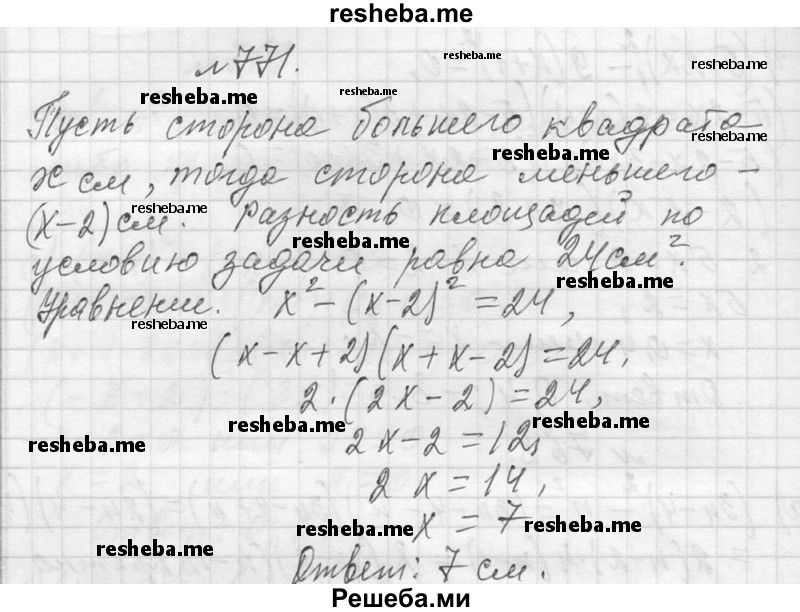 resheba.me
№771. resheba.me resheba.me
resheba.me resheba.me
Пусть сторона большего квадрата resheba.me
resheba.me
x см, тогда сторона меньшего –
(x-2) см. Разность площадей по resheba.me
resheba.me
условию задачи равна 24 см². resheba.me
Уравнение. x² - (x-2)² = 24,
resheba.me
(x-x+2)(x+x-2) = 24,
2·(2x-2) = 24,
resheba.me resheba.me
resheba.me 2x-2 = 12,
2x = 14,
x = 7 resheba.me resheba.me
resheba.me
Ответ: 7 см.
Решеба.ми